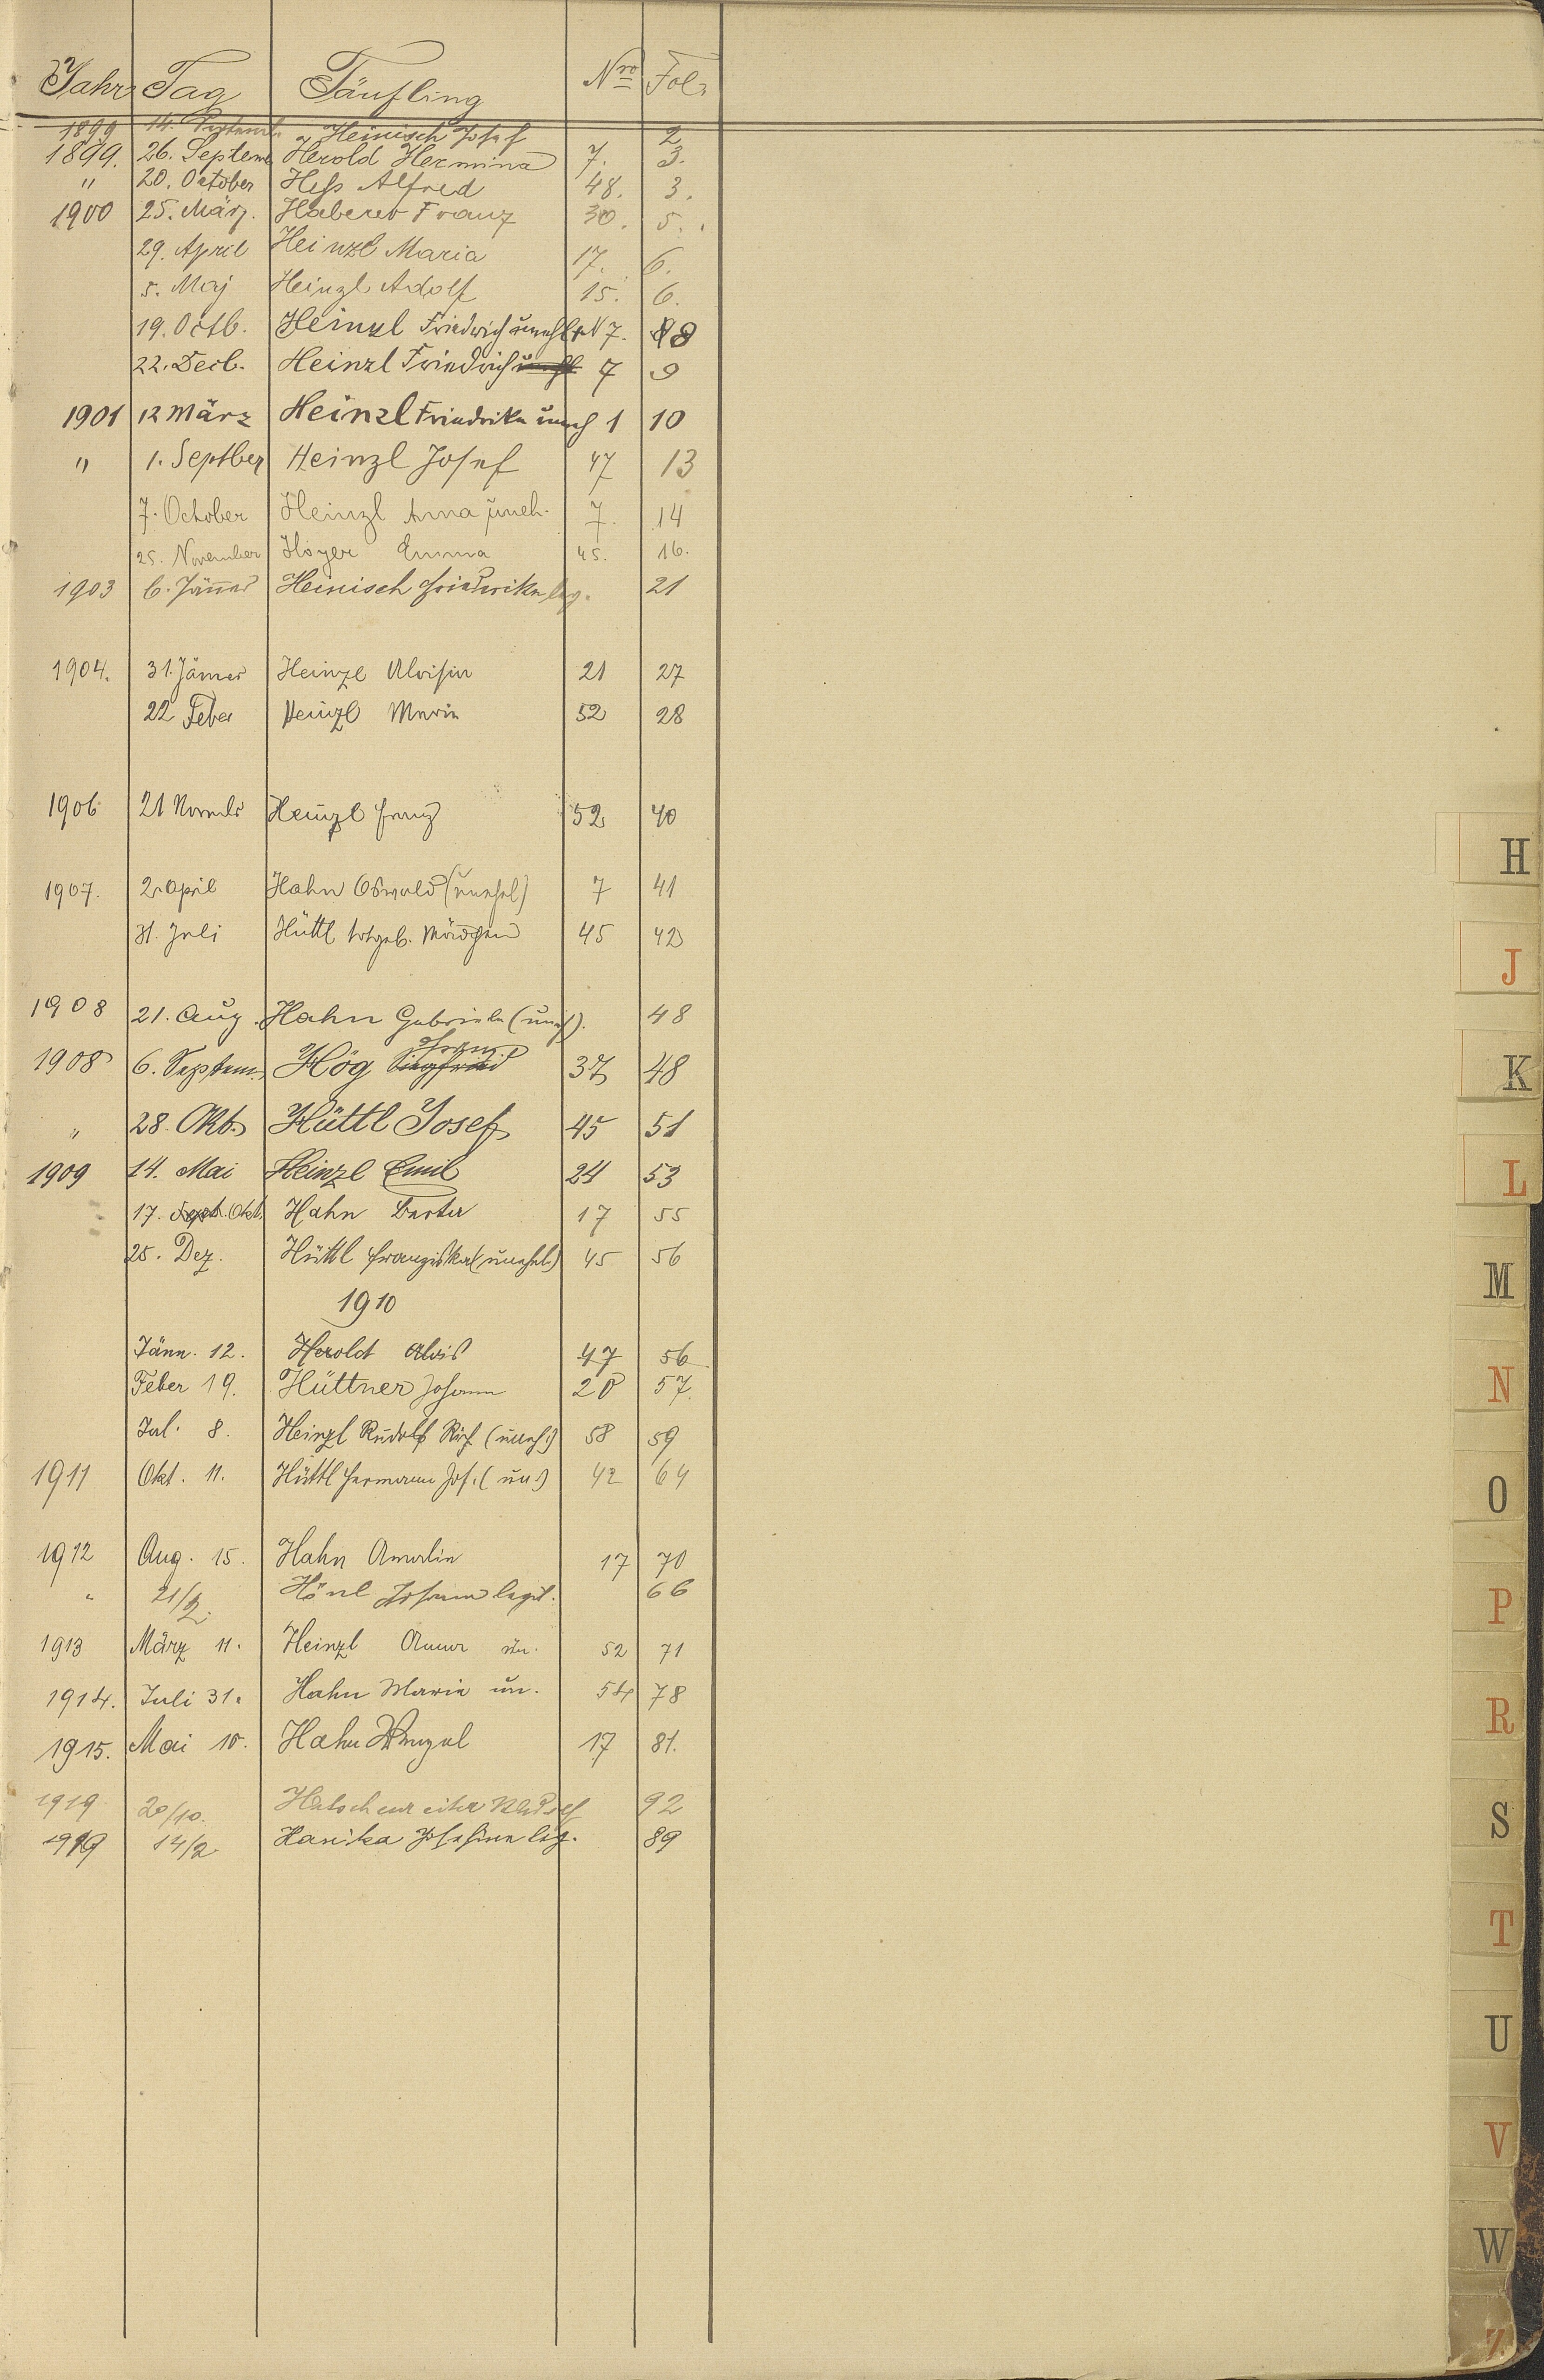 Jahr Tag Täufling Nro Fol.
1899 14. Heinisch Josef 2
1899. 26. Septem Herold Hermina 7. 3.
" 20. October Heß Alfred 48. 3.
1900 25. März. Haberer Franz 30. 5.
29. April Heinzl Maria 17. 6.
5. Maj Heinzl Adolf 15. 6.
19. Octb. Heinzl Friedrich unehl 7. 8
22. Decb. Heinzl Friedrich 7 9
1901 12 März Heinzl Friedrike uneh 1 10
" 1. Septber Heinzl Josef 47 13
7. October Heinzl Anna uneh. 7. 14
25. November Hoyer Emma 45. 16.
1903 6. Jänner Heinisch Friedrike leg. 21
1904. 31. Jänner Heinzl Aloisia 21 27
22 Feber Heinzl Maria 52 28
1906 21 Novemb Heinzl Franz 52 40
1907. 2. April Hahn Oswald (unehel) 7 41
31. Juli Hüttl totgeb. Mädchen 45 42
1908 21. Aug. Hahn Gabriele (uneh). 48
Franz
1908 6. Septem. Hög Siegfried 37 48
" 28. Okt. Hüttl Josef 45 51
1909 14. Mai Heinzl Emil 24 53
17. Sept. Okt. Hahn Berta 17 55
25. Dez. Hüttl Franziska (unehel.) 45 56
1910
Jänn. 12. Herold Alois 47 56
Feber 19. Hüttner Johann 20 57.
Jul. 8. Heinzl Rudolf Rich. (uneh.) 58 59
1911 Okt. 11. Hüttl Hermann Jos. (un.) 42 64
1912 Aug. 15. Hahn Amalia 17 70
" 21/2. Hönl Johann legit. 66
1913 März 11. Heinzl Anna un. 52 71
1914. Juli 31. Hahn Maria un. 54 78
1915. Mai 10. Hahn Wenzel 17 81.
1919 20/10. 92
1919 14/2. Hanika Josefine leg. 89
H
J
K
L
M
N
O
P
R
S
T
U
V
W
Z